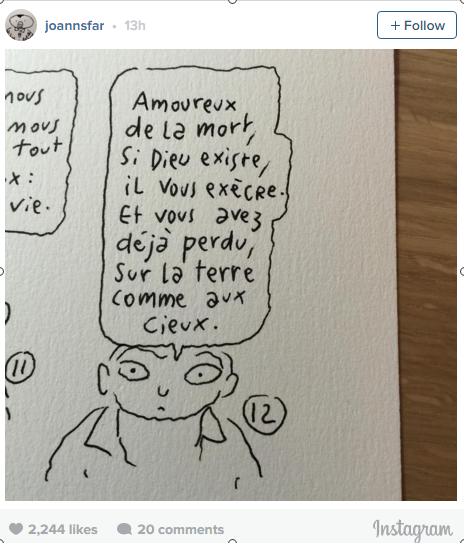 joannsfar • 13h
+ Follow
nous
mous
tout
x :
vie.
Amoureux
de la mort,
Si Dieu existe,
il vous exècre.
Et vous avez
déjà perdu,
sur la terre
comme aux
cieux.
11
12
2,244 likes
20 comments
Instagram